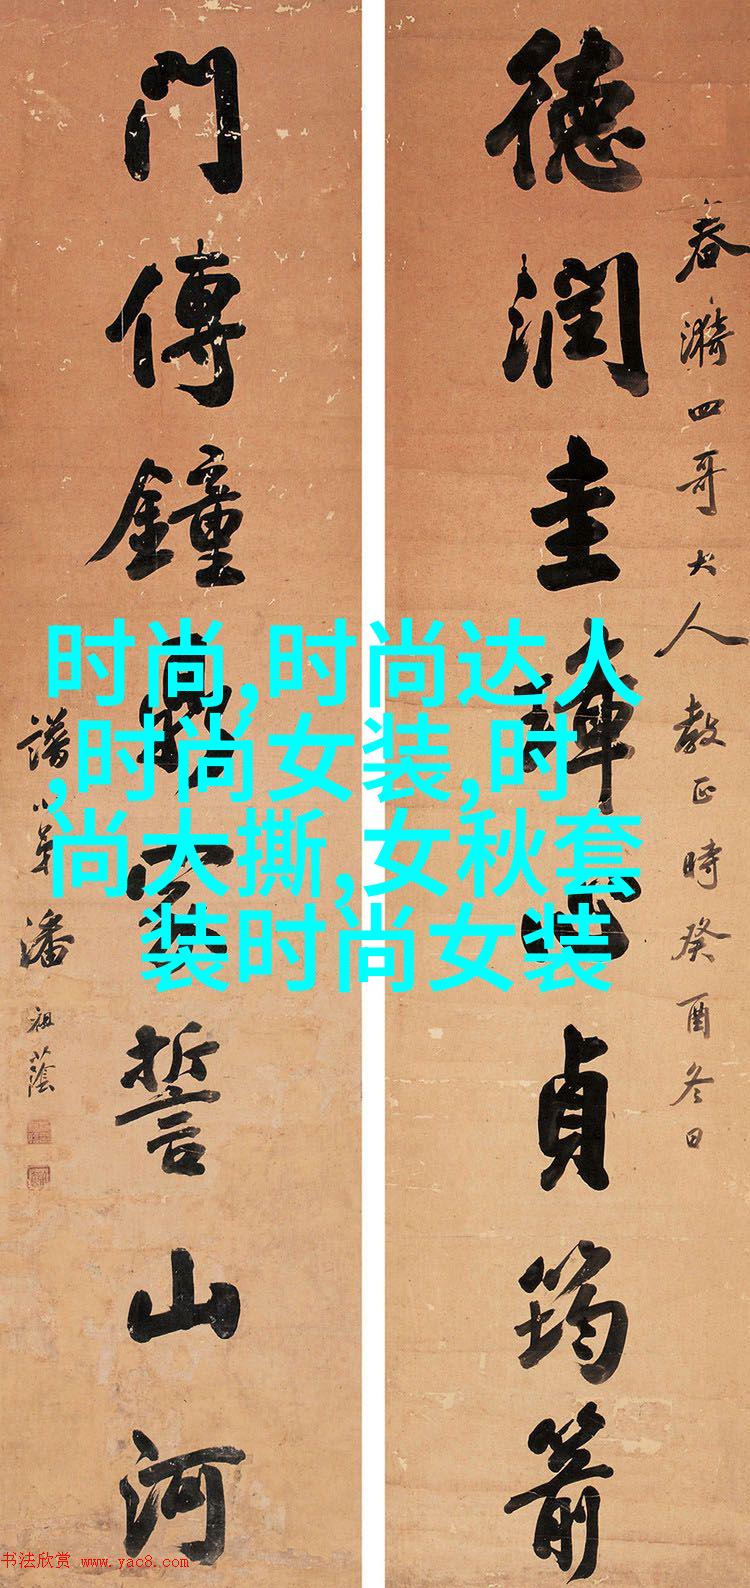 春漪四哥大人教正時癸酉冬日
德潤圭心貞筠箭
門傳鐘鼎家誓山河
譜小弟潘祖蔭
时尚,时尚达人
,时尚女装,时
尚大撕,女秋套
装时尚女装
书法欣赏 www.yac8.com